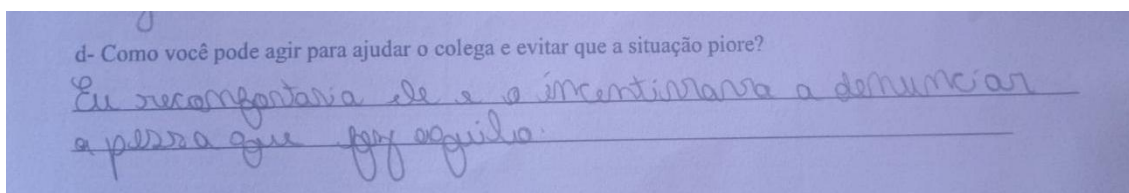 d- Como você pode agir para ajudar o colega e evitar que a situação piore?
Eu reconfortaria ele e o incentivaria a denunciar
a pessoa que fez aquilo.